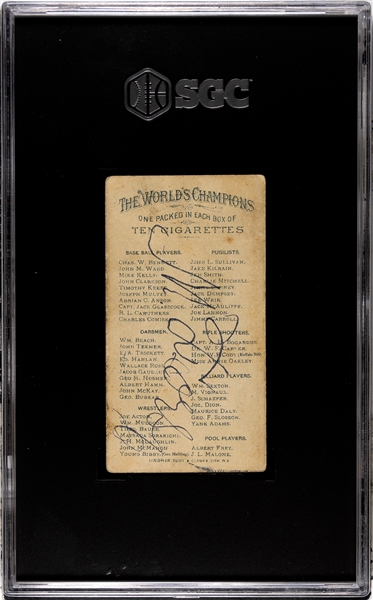 SGC
THE WORLD'S CHAMPIONS
ONE PACKED IN EACH BOX OF
TEN CIGARETTES
BASE BALL PLAYERS.
CHAS. W. BENNETT.
JOHN M. WARD.
MIKE KELLY.
JOHN CLARKSON.
TIMOTHY KEEFE.
JOSEPH MULVEY.
ADRIAN C. ANSON.
CAPT. JACK GLASSCOCK.
R. L. CARUTHERS
CHARLES COMISKEY.
OARSMEN.
WM. BEACH.
JOHN TEEMER.
E. A. TRICKETT.
ED. HANLAN.
WALLACE ROSS.
JACOB GAUDAUR.
GEO. H. HOSMER.
ALBERT HAMM.
JOHN McKAY.
GEO. BUBEAR.
WRESTLERS.
JOE ACTON.
WM. MULDOON.
THEO. BAUER.
MATSADA SORAKICHI.
J. H. McLAUGHLIN.
JOHN McMAHON
YOUNG BIBBY.
PUGILISTS.
JOHN L. SULLIVAN.
JAKE KILRAIN.
JEM SMITH.
CHARLIE MITCHELL.
JACK DEMPSEY.
IKE WEIR.
JACK McAULIFFE.
JOE LANNON.
JIMMY CARROLL.
RIFLE SHOOTERS.
CAPT. A. H. BOGARDUS.
DR. W. F. CARVER.
HON. W. F. CODY (Buffalo Bill)
MISS ANNIE OAKLEY.
BILLIARD PLAYERS.
WM. SEXTON.
M. VIGNAUX.
J. SCHAEFER.
JOS. DION.
MAURICE DALY.
GEO. F. SLOSSON.
YANK ADAMS.
POOL PLAYERS.
ALBERT FREY.
J. L. MALONE.